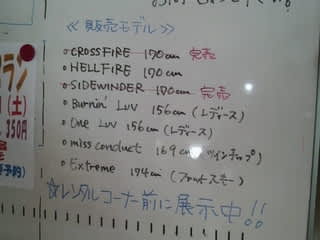 ≪販売モデル≫
CROSSFIRE 170cm 完売
HELLFIRE 170cm
SIDEWINDER 170cm 完売
Burnin' LUV 156cm (レディース)
One LUV 156cm (レディース)
miss conduct 169cm (ツインチップ)
Extreme 174cm (ファットスキー)
☆レンタルコーナー前に展示中!!
ラン
(土)
350円
予約)